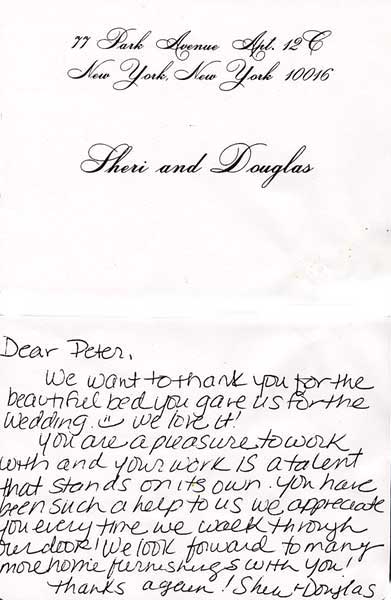 77 Park Avenue Apt. 12C
New York, New York 10016
Sheri and Douglas
Dear Peter,
We want to thank you for the
beautiful bed you gave us for the
wedding. We love it!
You are a pleasure to work
with and your work is a talent
that stands on its own. You have
been such a help to us we appreciate
you every time we walk through
our door! We look foward to many
more home furnishings with you!
Thanks again! Sheri + Douglas